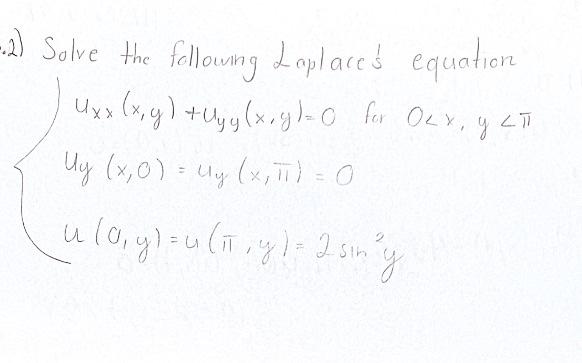 .2) Solve the following Laplace's equation
uxx (x,y) + uyy (x,y) = 0 for 0 < x, y < π
uy (x,0) = uy (x,π) = 0
u (0,y) = u (π,y) = 2 sin²y